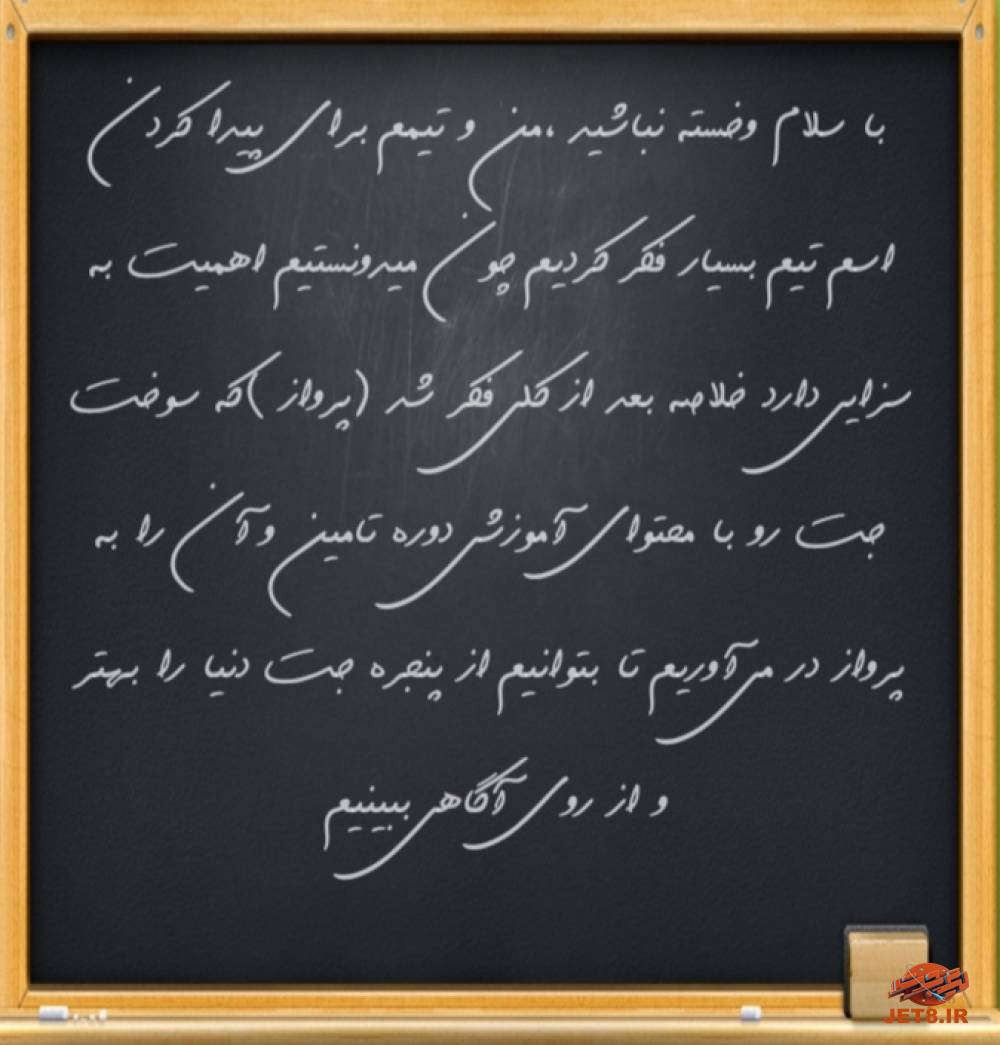 با سلام وخسته نباشید ،من و تیمم برای پیدا کردن
اسم تیم بسیار فکر کردیم چون میدونستیم اهمیت به
سزایی دارد خلاصه بعد از کلی فکر شد (پرواز )که سوخت
جت رو با محتوای آموزشی دوره تامین و آن را به
پرواز در می‌آوریم تا بتوانیم از پنجره جت دنیا را بهتر
و از روی آگاهی ببینیم
JET8.IR